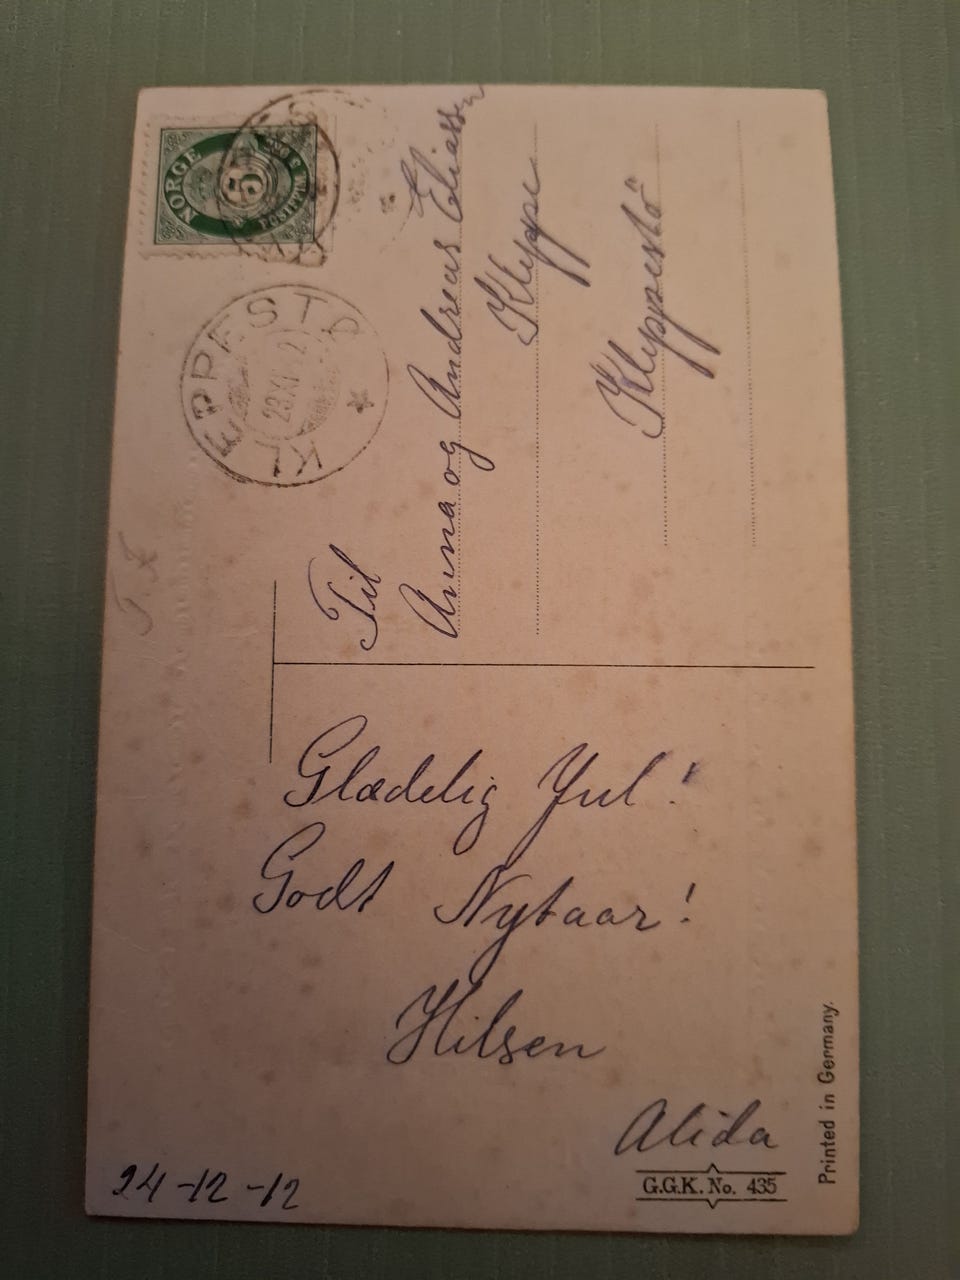 NORGE
5
POSTFRIM
KLEPPESTØ
23 XII 12
Til
Anna og Andreas Eliassen
Kleppe
Kleppestö
Glædelig Jul!
Godt Nytaar!
Hilsen
Alida
24-12-12
G.G.K. No. 435
Printed in Germany.